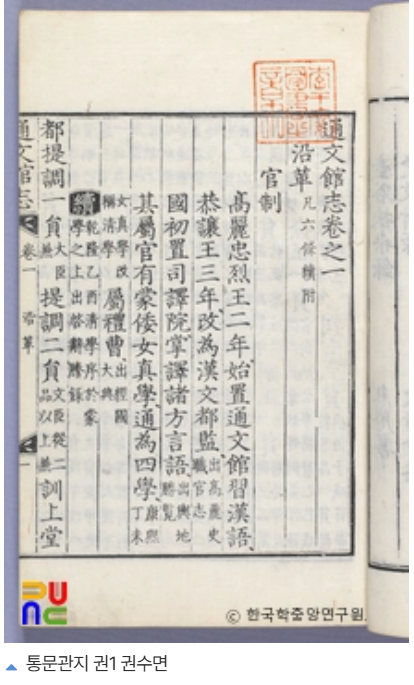 通文館志卷之一
沿革 凡六條續附
官制
高麗忠烈王二年始置通文館習漢語
恭讓王三年改為漢文都監 出高麗史職官志
國初置司譯院掌譯諸方言語 出輿地勝覽
其屬官有蒙倭女真學通為四學 康熙丁未
女真學改稱清學 屬禮曹 出經國大典
續 乾隆乙酉清學序於蒙學之上出啓辭謄錄
都提調一貟 大臣兼 提調二貟 文臣從二品以上兼 訓上堂
通文館志 卷一 沿革 一
© 한국학중앙연구원
통문관지 권1 권수면